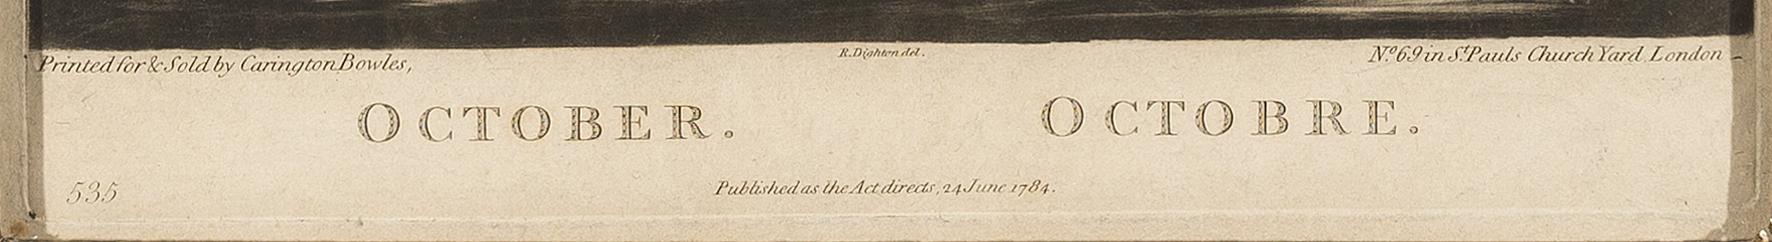 Printed for & Sold by Carington Bowles,
R. Dighton del.
No. 69 in St. Pauls Church Yard London
OCTOBER. OCTOBRE.
535
Published as the Act directs, 24 June 1784.